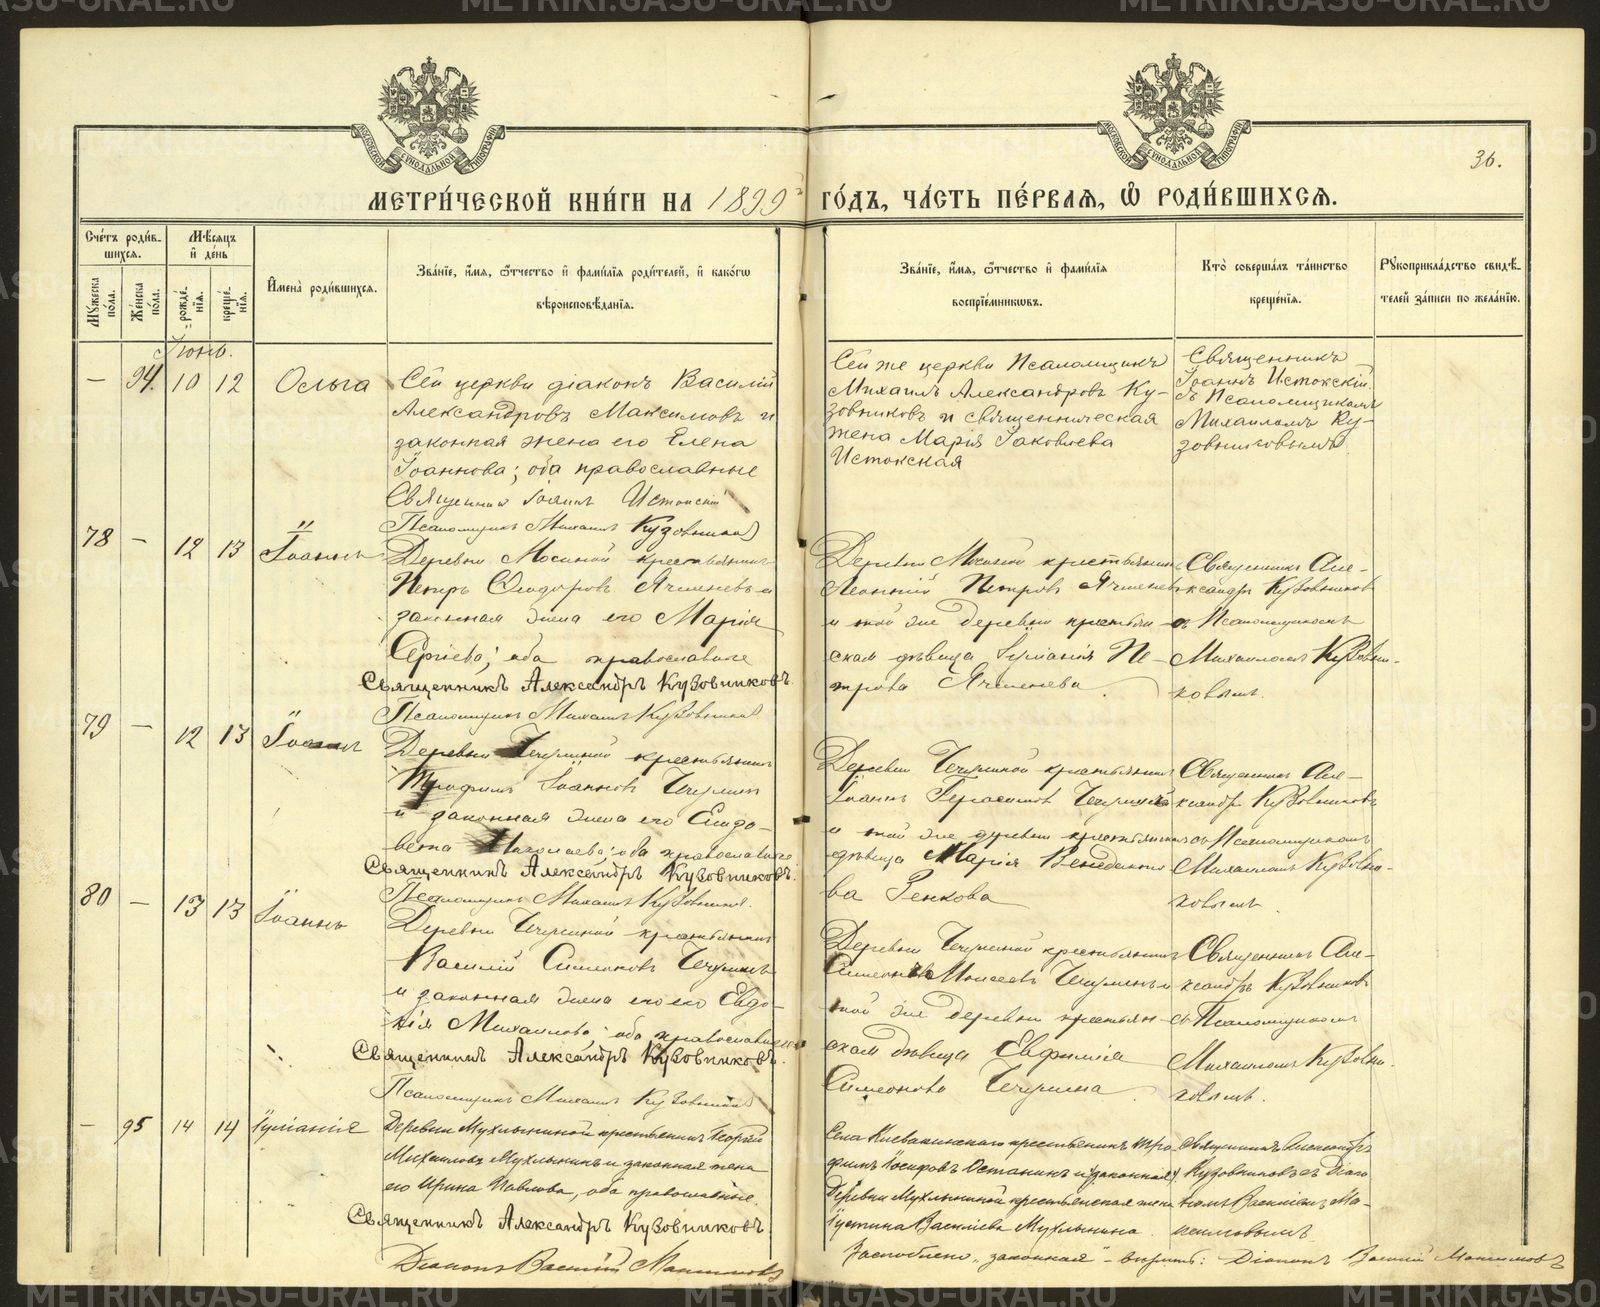 METRIKI.GASO-URAL.RU
МОСКОВСКОЙ СѴНОДАЛЬНОЙ ТИПОГРАФІИ
МОСКОВСКОЙ СѴНОДАЛЬНОЙ ТИПОГРАФІИ
36.
МЕТРИ́ЧЕСКОЙ КНИ́ГИ НА 1899 ГО́ДЪ, ЧА́СТЬ ПЕ́РВАЯ, Ѡ РОДИ́ВШИХСЯ.
Сче́тъ роди́в-
шихся.
Мꙋжеска пола.
Же́нска по́ла.
Мѣ́сяцъ
и҆ де́нь
рожде́-
нїя.
креще́-
нїя.
И҆мена̀ роди́вшихся.
Зва́нїе, и҆́мя, ѻ҆́тчество и҆ фами́лїя роди́телей, и҆ како́гѡ
вѣроисповѣ́данїя.
Зва́нїе, и҆́мя, ѻ҆́тчество и҆ фами́лїя
воспрїе́мникѡвъ.
Кто̀ соверша́лъ та́инство
креще́нїя.
Рꙋкоприкла́дство свидѣ́-
телей за́писи по жела́нїю.
Іюнь.
— 94. 10 12 Ольга
Сей церкви діаконъ Василій
Александровъ Максимовъ и
законная жена его Елена
Іоаннова; оба православные
Священникъ Іоаннъ Истокскій
Псаломщикъ Михаилъ Кузовников
Сей же церкви Псаломщикъ
Михаилъ Александровъ Ку-
зовниковъ и священническая
жена Марія Іаковлева
Истокская
Священникъ
Іоаннъ Истокскій
съ Псаломщикомъ
Михаиломъ Ку-
зовниковымъ
78 — 12 13 Іоаннъ
Деревни Мосиной крестьянинъ
Петръ Ѳеодоровъ Ячменевъ и
законная жена его Марія
Сергіева; оба православные
Священникъ Александръ Кузовниковъ.
Псаломщикъ Михаилъ Кузовников
Деревни Мосиной крестьянинъ
Леонтий Петровъ Ячменевъ
и той же деревни крестьян-
ская дѣвица Іуліанія Пе-
трова Ячменева.
Священникъ Але-
ксандръ Кузовников
съ Псаломщикомъ
Михаиломъ Кузовни-
ковымъ.
79 — 12 13 Іоаннъ
Деревни Чечулиной крестьянинъ
Трофимъ Іоанновъ Чечулинъ
и законная жена его Елизо-
вета Николаева; оба православные
Священникъ Александръ Кузовниковъ.
Псаломщикъ Михаилъ Кузовников.
Деревни Чечулиной крестьянинъ
Іоаннъ Герасимовъ Чечулинъ
и той же деревни крестьянская
дѣвица Марія Венедикто-
ва Генкова
Священникъ Але-
ксандръ Кузовниковъ
съ Псаломщикомъ
Михаиломъ Кузовни-
ковымъ.
80 — 13 13 Іоаннъ
Деревни Чечулиной крестьянинъ
Василій Симеоновъ Чечулинъ
и законная жена его его Евдо-
кія Михаилова; оба православные
Священникъ Александръ Кузовниковъ.
Псаломщикъ Михаилъ Кузовников
Деревни Чечулиной крестьянинъ
Симеонъ Моисеевъ Чечулинъ и
той же деревни крестьян-
ская дѣвица Евфимія
Симеонова Чечулина.
Священникъ Але-
ксандръ Кузовников
съ Псаломщикомъ
Михаиломъ Кузовни-
ковымъ.
— 95 14 14 Іуліанія
Деревни Мухлыниной крестьянинъ Георгій
Михаиловъ Мухлынинъ и законная жена
его Ирина Павлова, оба православные.
Священникъ Александръ Кузовниковъ.
Діаконъ Василій Максимовъ
Села Невьянскаго крестьянинъ Тро-
фимъ Іосифовъ Останинъ и (законная)
деревни Мухлыниной крестьянская жена
Іустина Василіева Мухлынина.
Священникъ Александръ
Кузовниковъ съ Діако-
номъ Василіемъ Ма-
ксимовымъ.
„законная" - вѣрить: Діаконъ Василій Максимовъ